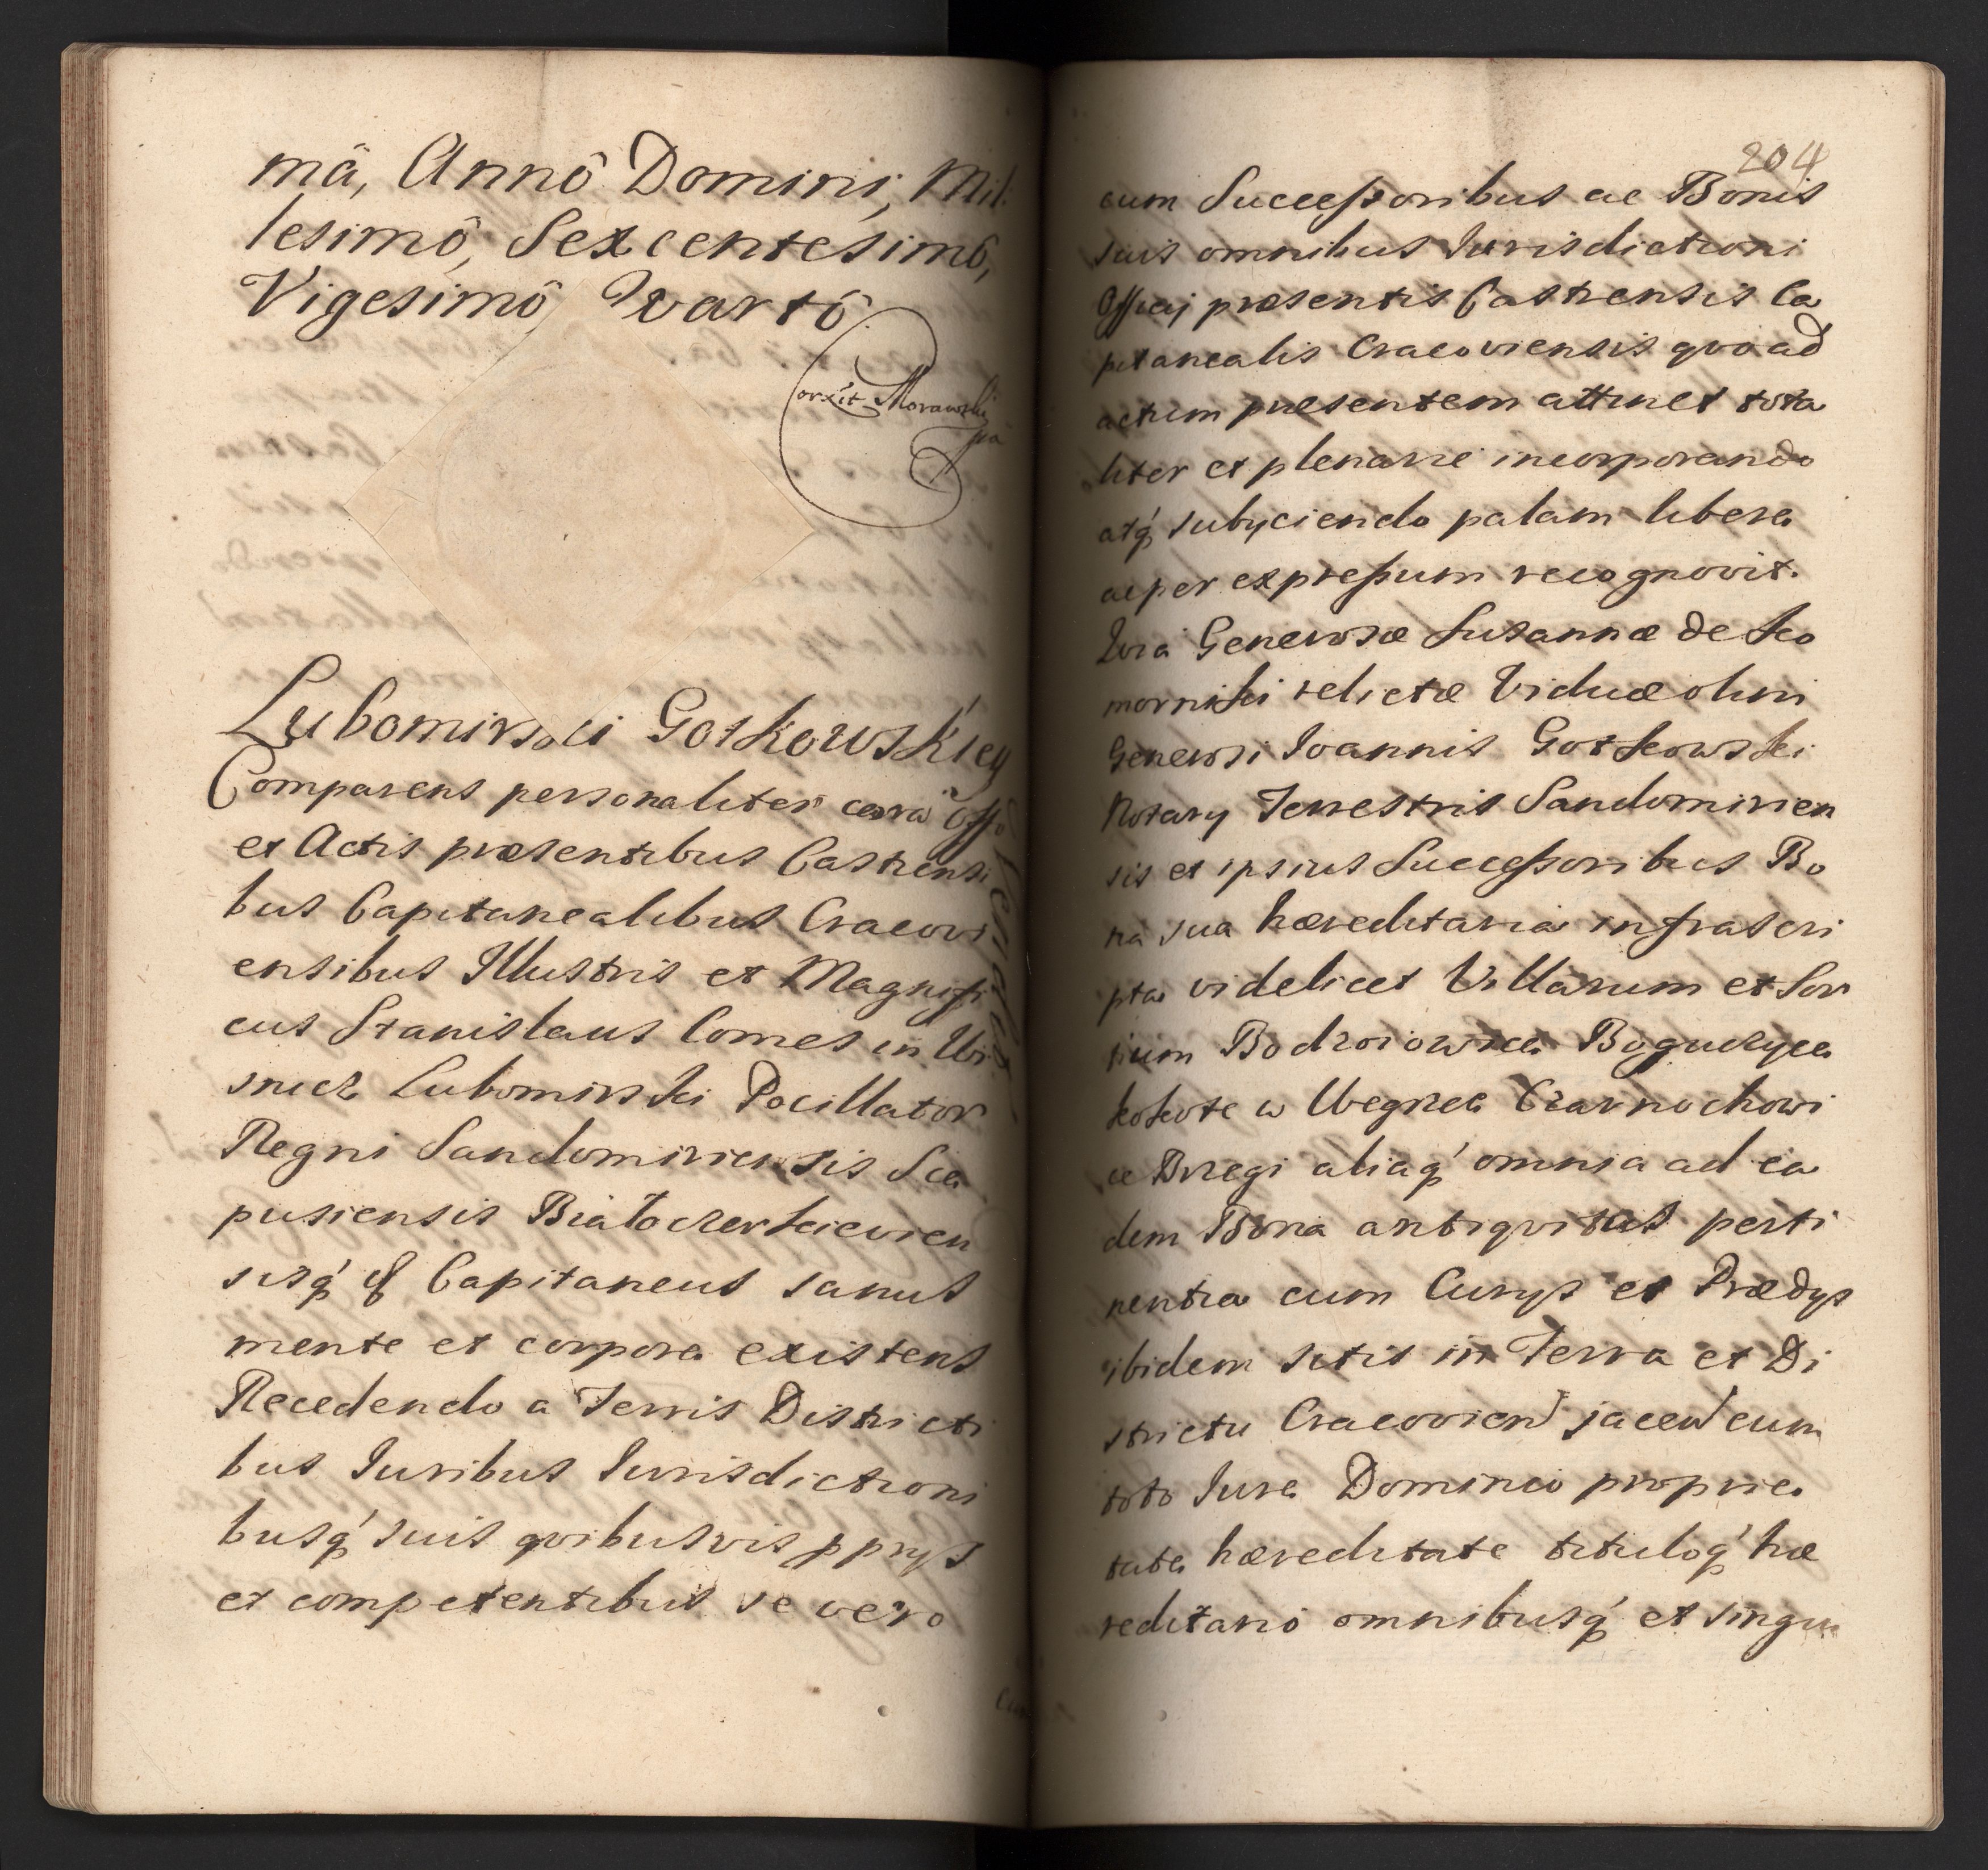 mâ, Annô Domini, Mil:
lesimô, Sexcentesimô,
Vigesimô Qvartô
Corxit Morawski
pa
Lubomirski Gotkowskiey
Comparens personaliter cora Offo
et Actis præsentibus Castrensi
bus Capitanealibus Cracovi
ensibus Illustris et Magnifi
cus Stanislaus Comes in Wi
snicz Lubomirski Pocillator
Regni Sandomiriensis Sce
pusiensis Białocerkievien
sisq́ Capitaneus sanus
mente et corpore existens
Recedendo a Terris Districti
bus Iuribus Iurisdictioni
busq́ suis qvibusvis pprys
et competentibus se vero
204
cum Successoribus ac Bonis
suis omnibus Iurisdictioni
Officij præsentis Castrensis Ca
pitanealis Cracoviensis qvoad
actum præsentem attinet tota
liter et plenarie incorporando
atq́ subyciendo palam libere
ac per expressum recognovit.
Qvia Generosæ Susannæ de Ko
morniki relictæ Viduæ olim
Generosi Ioannis Gotkowski
Notary Terrestris Sandomirien
sis et ipsius Successoribus Bo
na sua hæreditaria infrascri
pta videlicet Villarum et Sor
tium Bodzoiowice Boguczyce
kokote w Wegrce Czarnochowi
ce Brzegi aliaq́ omnia ad ea
dem Bona antiqvitus perti
nentia cum Curys et Prædys
ibidem sitis in Terra et Di
strictu Cracovien jacen cum
toto Iure Dominio proprie
tate hæreditate tituloq́ hæ
reditario omnibusq́ et singu